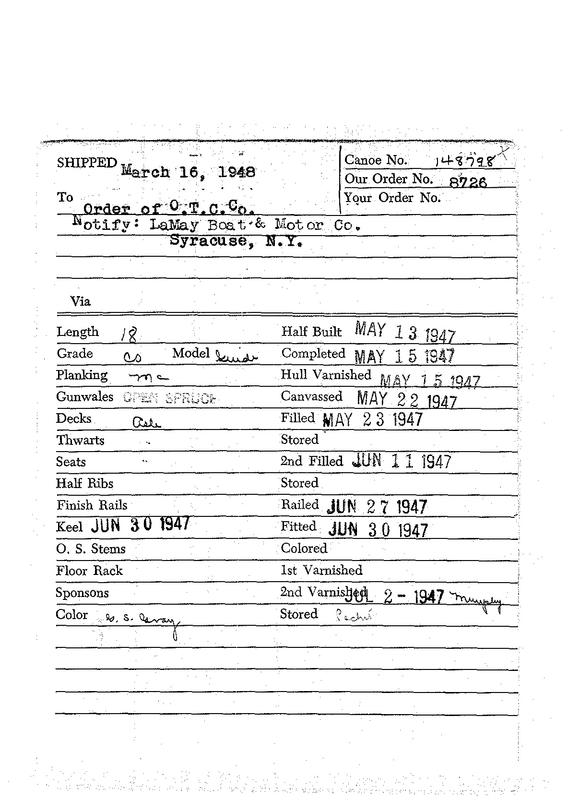 SHIPPED March 16, 1948
Canoe No. 148798
Our Order No. 8726
To Order of O.T.C.Co.
Your Order No.
Notify: LaMay Boat & Motor Co.
Syracuse, N.Y.
Via
Length 18 Half Built MAY 13 1947
Grade CS Model Guide Completed MAY 15 1947
Planking Hull Varnished MAY 15 1947
Gunwales OPEN SPRUCE Canvassed MAY 22 1947
Decks Ash Filled MAY 23 1947
Thwarts " Stored
Seats " 2nd Filled JUN 11 1947
Half Ribs Stored
Finish Rails Railed JUN 27 1947
Keel JUN 30 1947 Fitted JUN 30 1947
O. S. Stems Colored
Floor Rack 1st Varnished
Sponsons 2nd Varnished JUL 2 - 1947 Murphy
Color Gray Stored